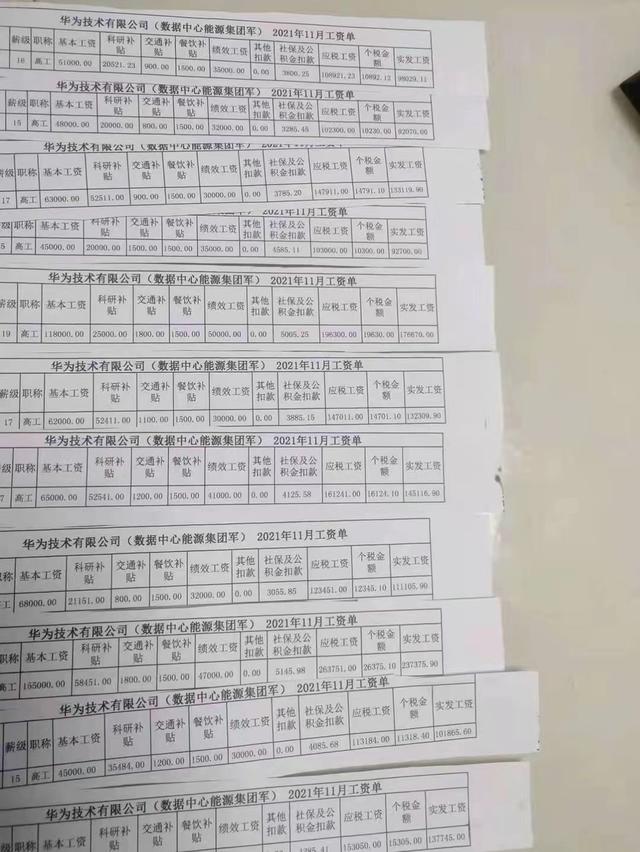 华为技术有限公司（数据中心能源集团军） 2021年11月工资单
薪级 职称 基本工资 科研补贴 交通补贴 餐饮补贴 绩效工资 其他扣款 社保及公积金扣款 应税工资 个税金额 实发工资
16 高工 51000.00 20521.23 900.00 1500.00 35000.00 0.00 3800.25 108921.23 10892.12 98029.11
华为技术有限公司（数据中心能源集团军） 2021年11月工资单
薪级 职称 基本工资 科研补贴 交通补贴 餐饮补贴 绩效工资 其他扣款 社保及公积金扣款 应税工资 个税金额 实发工资
15 高工 48000.00 20000.00 800.00 1500.00 32000.00 0.00 3285.45 102300.00 10230.00 92070.00
华为技术有限公司（数据中心能源集团军） 2021年11月工资单
薪级 职称 基本工资 科研补贴 交通补贴 餐饮补贴 绩效工资 其他扣款 社保及公积金扣款 应税工资 个税金额 实发工资
17 高工 63000.00 52511.00 900.00 1500.00 30000.00 0.00 3785.20 147911.00 14791.10 133119.90
2021年11月工资单
薪级 职称 基本工资 科研补贴 交通补贴 餐饮补贴 绩效工资 其他扣款 社保及公积金扣款 应税工资 个税金额 实发工资
5 高工 45000.00 20090.00 1500.00 1500.00 35000.00 0.00 4585.11 103000.00 10300.00 92700.00
华为技术有限公司（数据中心能源集团军） 2021年11月工资单
薪级 职称 基本工资 科研补贴 交通补贴 餐饮补贴 绩效工资 其他扣款 社保及公积金扣款 应税工资 个税金额 实发工资
19 高工 118000.00 25000.00 1800.00 1500.00 50000.00 0.00 5005.25 196300.00 19630.00 176670.00
华为技术有限公司（数据中心能源集团军） 2021年11月工资单
薪级 职称 基本工资 科研补贴 交通补贴 餐饮补贴 绩效工资 其他扣款 社保及公积金扣款 应税工资 个税金额 实发工资
17 高工 62000.00 52411.00 1100.00 1500.00 30000.00 0.00 3885.15 147011.00 14701.10 132309.90
华为技术有限公司（数据中心能源集团军） 2021年11月工资单
级 职称 基本工资 科研补贴 交通补贴 餐饮补贴 绩效工资 其他扣款 社保及公积金扣款 应税工资 个税金额 实发工资
7 高工 65000.00 52541.00 1200.00 1500.00 41000.00 0.00 4125.58 161241.00 16124.10 145116.90
华为技术有限公司（数据中心能源集团军） 2021年11月工资单
职称 基本工资 科研补贴 交通补贴 餐饮补贴 绩效工资 其他扣款 社保及公积金扣款 应税工资 个税金额 实发工资
工 68000.00 21151.00 800.00 1500.00 32000.00 0.00 3055.85 123451.00 12345.10 111105.90
华为技术有限公司（数据中心能源集团军） 2021年11月工资单
职称 基本工资 科研补贴 交通补贴 餐饮补贴 绩效工资 其他扣款 社保及公积金扣款 应税工资 个税金额 实发工资
高工 155000.00 58451.00 1800.00 1500.00 47000.00 0.00 5145.98 263751.00 26375.10 237375.90
华为技术有限公司（数据中心能源集团军） 2021年11月工资单
薪级 职称 基本工资 科研补贴 交通补贴 餐饮补贴 绩效工资 其他扣款 社保及公积金扣款 应税工资 个税金额 实发工资
15 高工 45000.00 35484.00 1200.00 1500.00 30000.00 0.00 4085.68 113184.00 11318.40 101865.60
华为技术有限公司（数据中心能源集团军） 2021年11月工资单
薪级 职称 基本工资 科研补贴 交通补贴 餐饮补贴 绩效工资 其他扣款 社保及公积金扣款 应税工资 个税金额 实发工资
153050.00 15305.00 137745.00